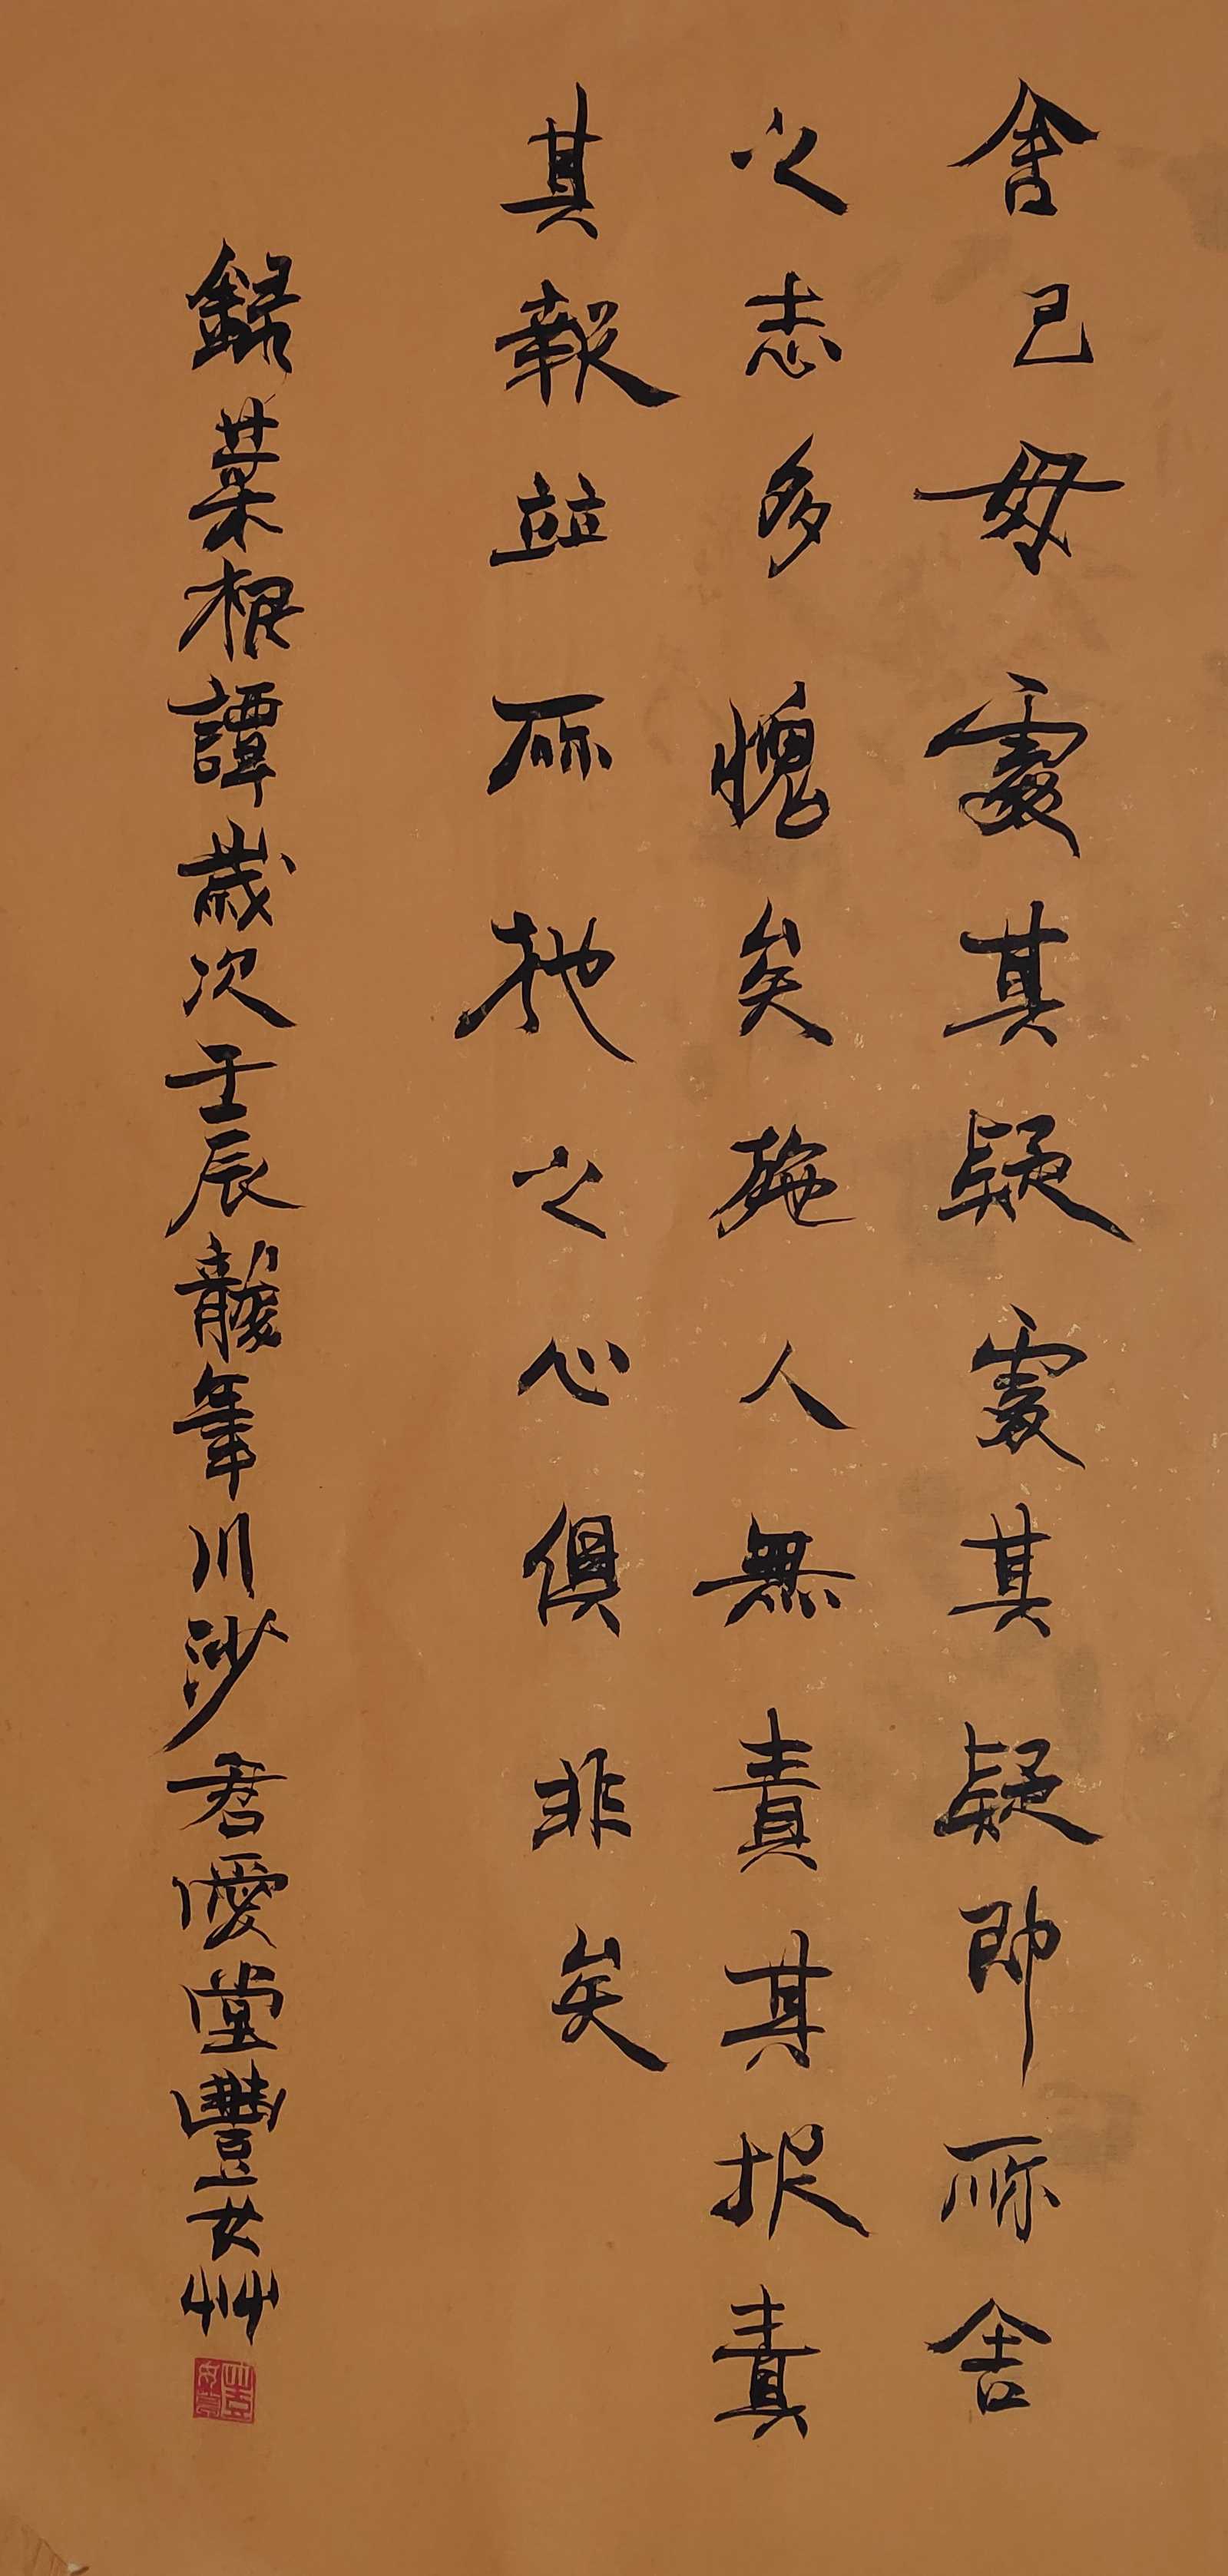 舍己毋處其疑處其疑即所舍
之志多愧矣施人無責其报責
其報並所施之心俱非矣
錄菜根譚歲次壬辰龍年川沙君愛堂豐女艸